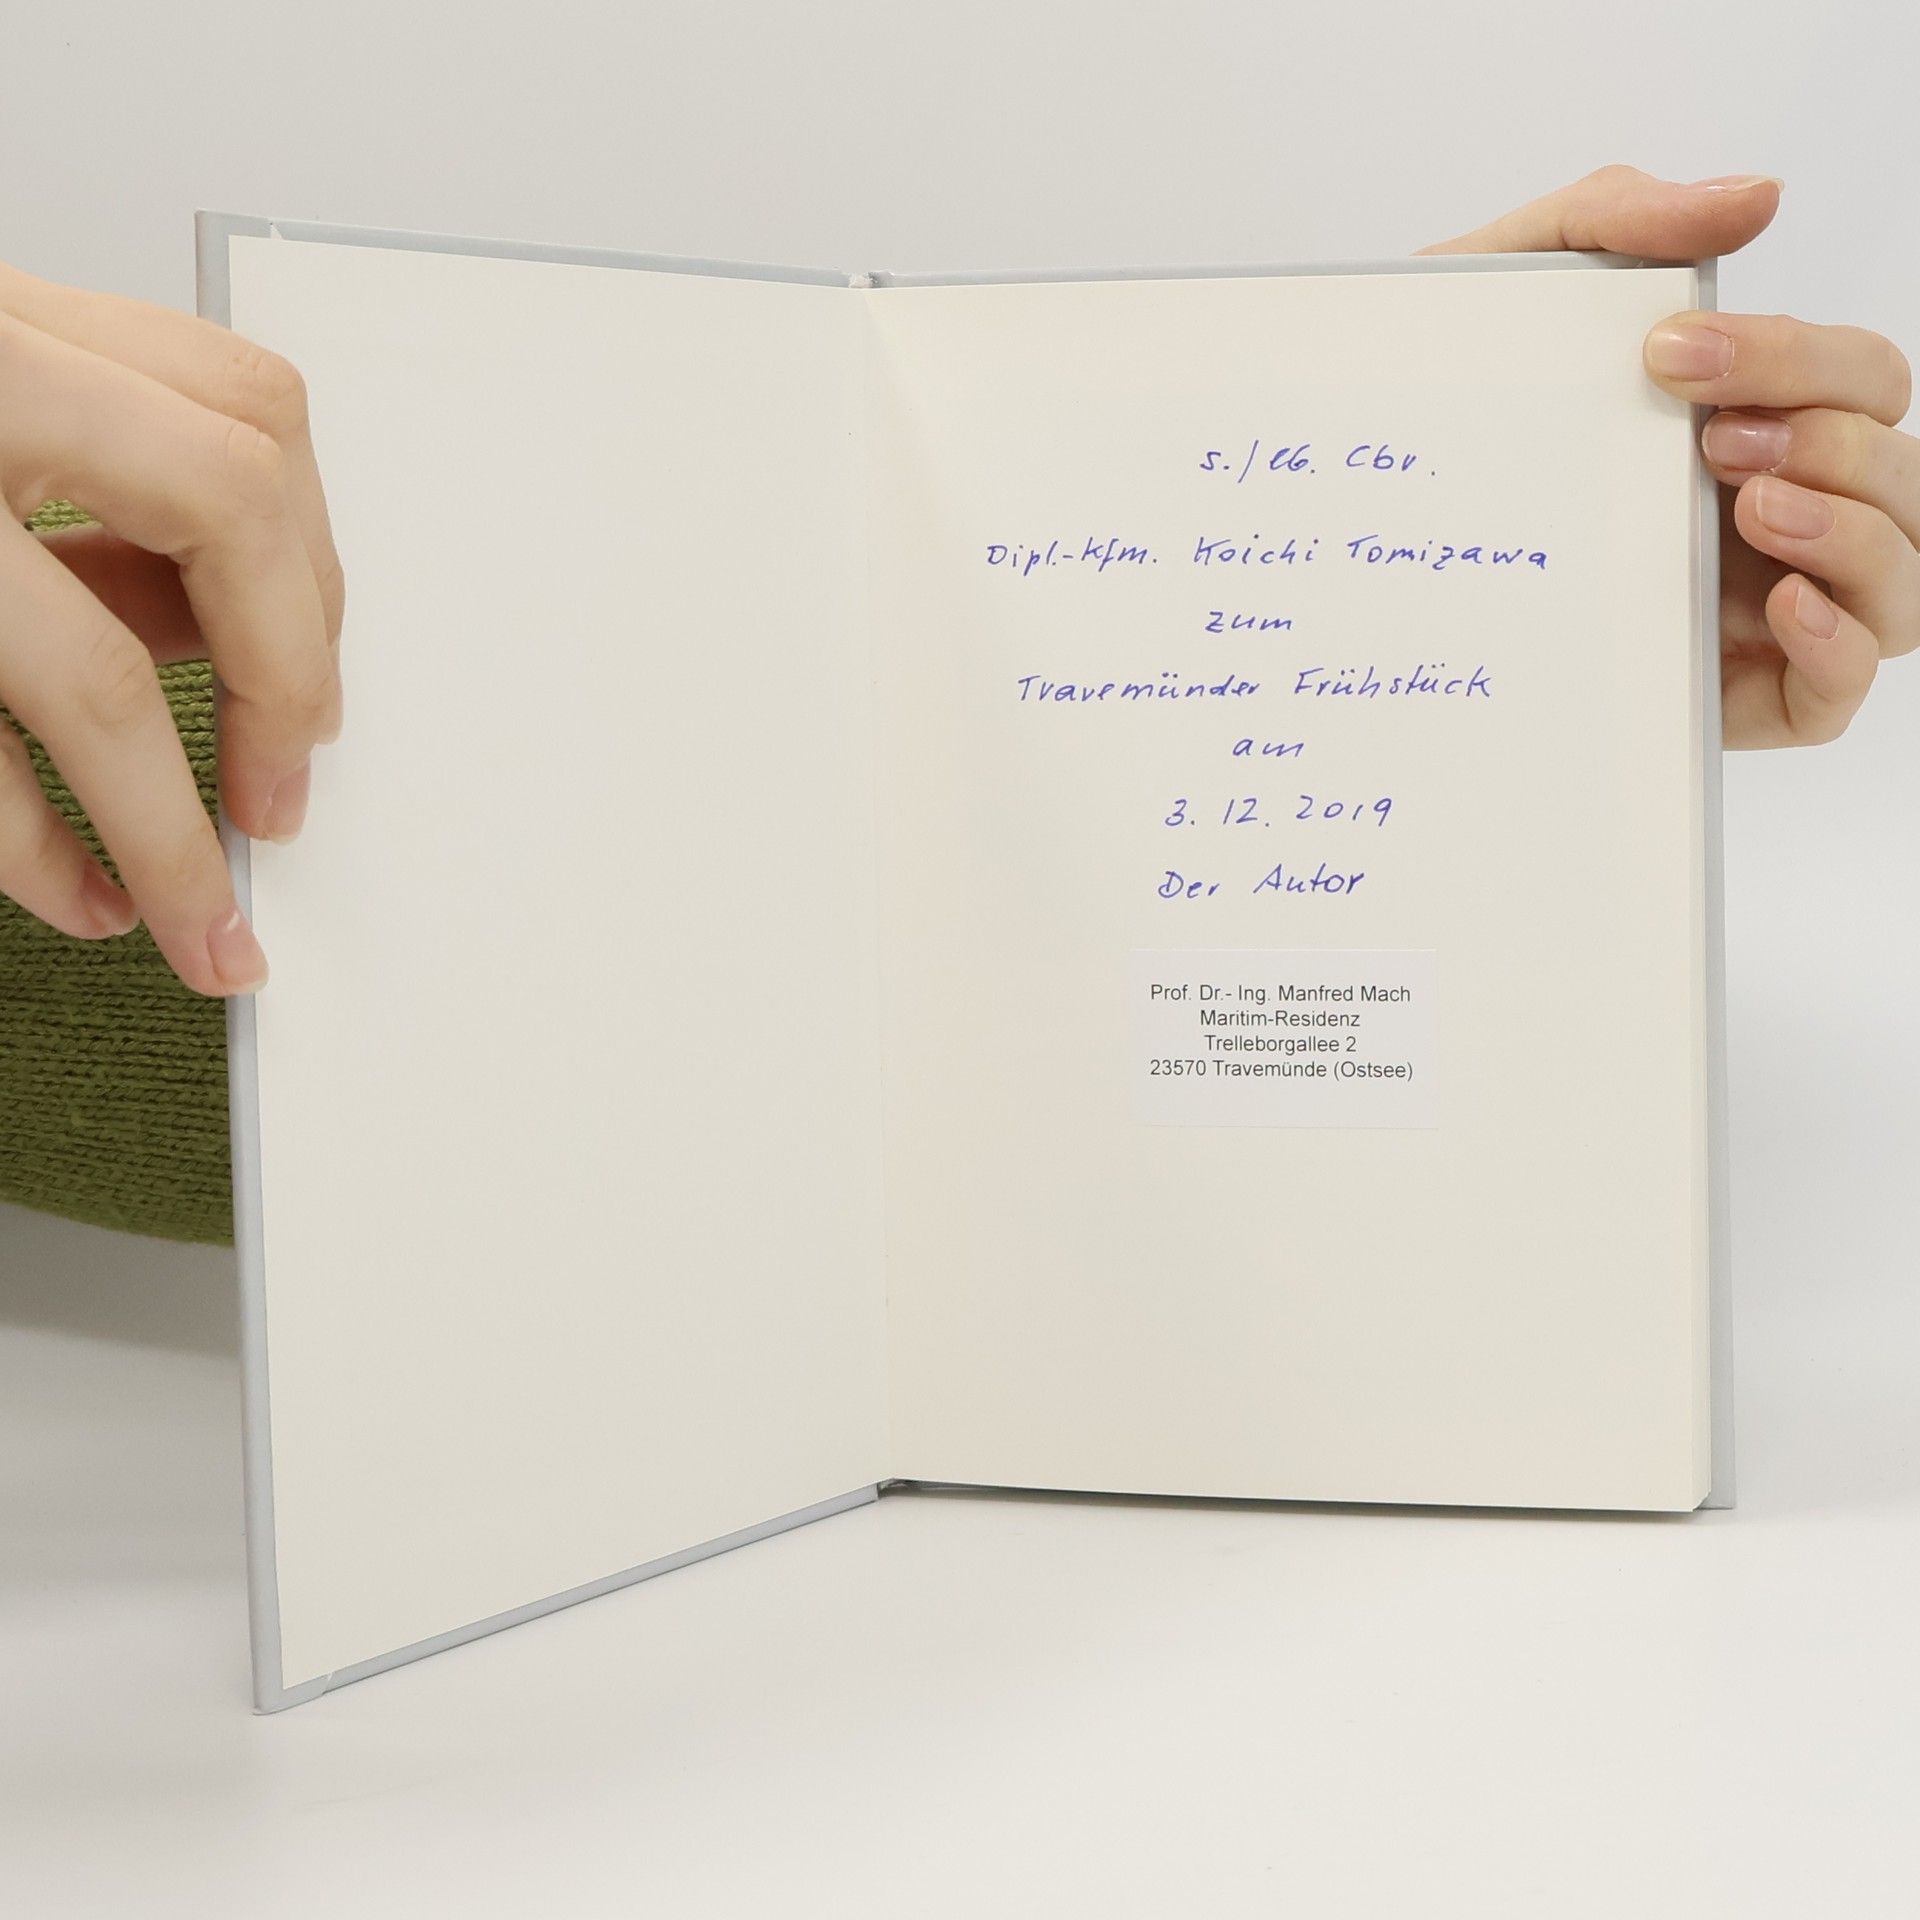 s./lb. Cbr.
Dipl.-Kfm. Koichi Tomizawa
zum
Travemünder Frühstück
am
3. 12. 2019
Der Autor
Prof. Dr.- Ing. Manfred Mach
Maritim-Residenz
Trelleborgallee 2
23570 Travemünde (Ostsee)